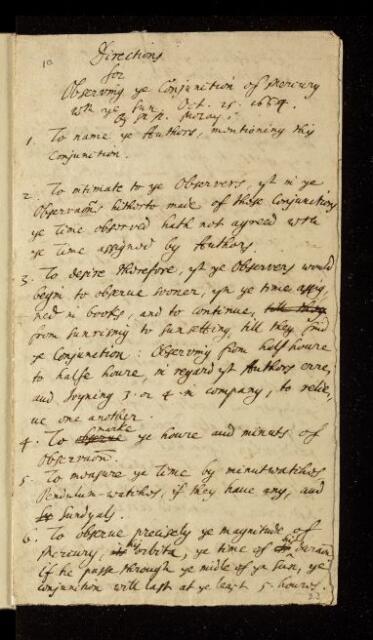 10
Directions
for
Observing ye Conjunction of Mercury
wth ye Sun. Oct. 25. 1664.
By Sr. R. Moray.
1. To name ye Authors, mentioning this
Conjunction.
2. To intimate to ye Observers, yt in ye
Observaons hitherto made of these Conjunctions
ye time observed hath not agreed with
ye time assigned by Authors.
3. To desire therefore, yt ye Observers would
begin to observe sooner, yn ye time assig,
ned in books, and to continue, till they
from sunrising to sunsetting, till they find
ye Conjunction: Observing from half houre
to halfe houre, in regard yt Authors erre,
and joyning 3. or 4. in company, to relie,
ue one another.
4. To observe marke ye houre and minuts of
Observaon.
5. To measure ye time by minutwatches,
Pendulum-watches, if they have any, and
Sundyals.
6. To observe precisely ye magnitude of
Mercury, his orbita, ye time of his
If he passe through ye midle of ye Sun, ye
conjunction will last at ye least 5. houres.
22